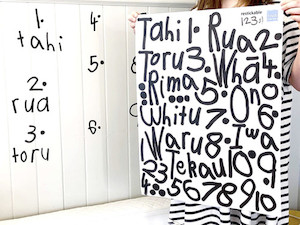 1.
tahi
2.
rua
3.
toru
4.
5.
6.
restickable
123!!
Tahi 1. Rua 2.
Toru 3. Whā 4.
Rima 5. Ono
Whitu 7. 6
Waru 8. Iwa
23 Tekau 10 9
4. 5 6 7 8 9 10